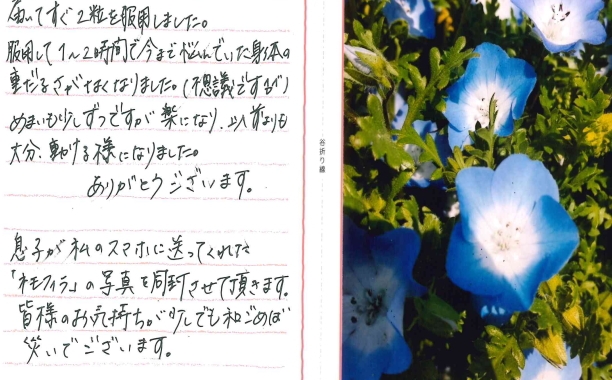 届いてすぐ2粒を服用しました。
服用して1〜2時間で今まで悩んでいた身体の
重だるさがなくなりました。(不思議ですが)
めまいも少しずつですが楽になり、以前よりも
大分、動ける様になりました。
ありがとうございます。
息子が私のスマホに送ってくれた
「ネモフィラ」の写真を同封させて頂きます。
皆様のお気持ちが少しでも和ごめば
幸いでございます。
谷折り線